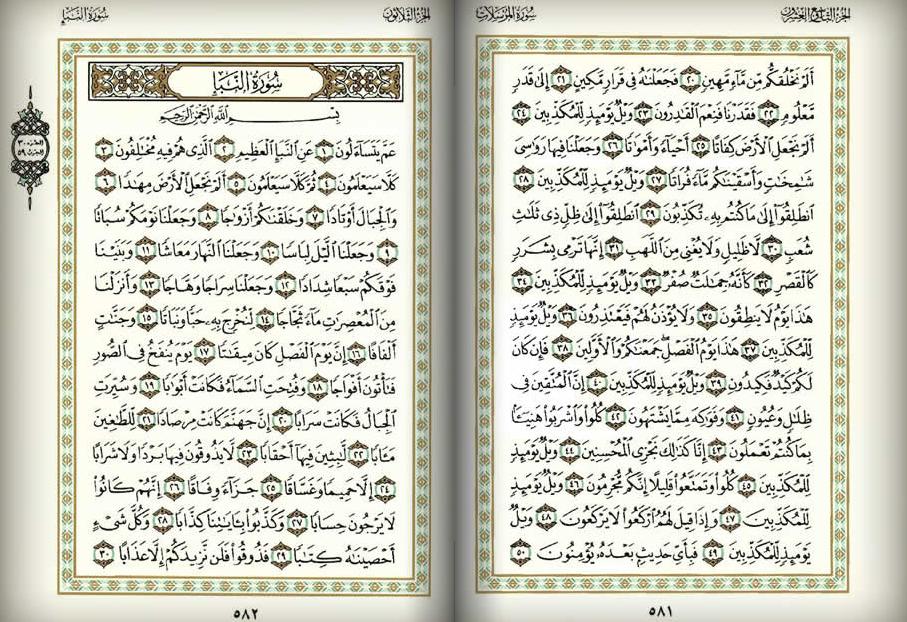 الجزء التاسع والعشرون سورة المرسلات
أَلَمْ نَخْلُقكُّم مِّن مَّآءٍ مَّهِينٍ ٢٠ فَجَعَلْنَٰهُ فِى قَرَارٍ مَّكِينٍ ٢١ إِلَىٰ قَدَرٍ
مَّعْلُومٍ ٢٢ فَقَدَرْنَا فَنِعْمَ ٱلْقَٰدِرُونَ ٢٣ وَيْلٌ يَوْمَئِذٍ لِّلْمُكَذِّبِينَ ٢٤
أَلَمْ نَجْعَلِ ٱلْأَرْضَ كِفَاتًا ٢٥ أَحْيَآءً وَأَمْوَٰتًا ٢٦ وَجَعَلْنَا فِيهَا رَوَٰسِىَ
شَٰمِخَٰتٍ وَأَسْقَيْنَٰكُم مَّآءً فُرَاتًا ٢٧ وَيْلٌ يَوْمَئِذٍ لِّلْمُكَذِّبِينَ ٢٨
ٱنطَلِقُوٓا۟ إِلَىٰ مَا كُنتُم بِهِۦ تُكَذِّبُونَ ٢٩ ٱنطَلِقُوٓا۟ إِلَىٰ ظِلٍّ ذِى ثَلَٰثِ
شُعَبٍ ٣٠ لَّا ظَلِيلٍ وَلَا يُغْنِى مِنَ ٱللَّهَبِ ٣١ إِنَّهَا تَرْمِى بِشَرَرٍ
كَٱلْقَصْرِ ٣٢ كَأَنَّهُۥ جِمَٰلَتٌ صُفْرٌ ٣٣ وَيْلٌ يَوْمَئِذٍ لِّلْمُكَذِّبِينَ ٣٤
هَٰذَا يَوْمُ لَا يَنطِقُونَ ٣٥ وَلَا يُؤْذَنُ لَهُمْ فَيَعْتَذِرُونَ ٣٦ وَيْلٌ يَوْمَئِذٍ
لِّلْمُكَذِّبِينَ ٣٧ هَٰذَا يَوْمُ ٱلْفَصْلِ ۖ جَمَعْنَٰكُمْ وَٱلْأَوَّلِينَ ٣٨ فَإِن كَانَ
لَكُمْ كَيْدٌ فَكِيدُونِ ٣٩ وَيْلٌ يَوْمَئِذٍ لِّلْمُكَذِّبِينَ ٤٠ إِنَّ ٱلْمُتَّقِينَ فِى
ظِلَٰلٍ وَعُيُونٍ ٤١ وَفَوَٰكِهَ مِمَّا يَشْتَهُونَ ٤٢ كُلُوا۟ وَٱشْرَبُوا۟ هَنِيٓـًٔۢا
بِمَا كُنتُمْ تَعْمَلُونَ ٤٣ إِنَّا كَذَٰلِكَ نَجْزِى ٱلْمُحْسِنِينَ ٤٤ وَيْلٌ يَوْمَئِذٍ
لِّلْمُكَذِّبِينَ ٤٥ كُلُوا۟ وَتَمَتَّعُوا۟ قَلِيلًا إِنَّكُم مُّجْرِمُونَ ٤٦ وَيْلٌ يَوْمَئِذٍ
لِّلْمُكَذِّبِينَ ٤٧ وَإِذَا قِيلَ لَهُمُ ٱرْكَعُوا۟ لَا يَرْكَعُونَ ٤٨ وَيْلٌ
يَوْمَئِذٍ لِّلْمُكَذِّبِينَ ٤٩ فَبِأَىِّ حَدِيثٍۭ بَعْدَهُۥ يُؤْمِنُونَ ٥٠
٥٨١
الجزء الثلاثون سورة النبإ
سُورَةُ النَّبَإِ
بِسْمِ ٱللَّهِ ٱلرَّحْمَٰنِ ٱلرَّحِيمِ
عَمَّ يَتَسَآءَلُونَ ١ عَنِ ٱلنَّبَإِ ٱلْعَظِيمِ ٢ ٱلَّذِى هُمْ فِيهِ مُخْتَلِفُونَ ٣
كَلَّا سَيَعْلَمُونَ ٤ ثُمَّ كَلَّا سَيَعْلَمُونَ ٥ أَلَمْ نَجْعَلِ ٱلْأَرْضَ مِهَٰدًا ٦
وَٱلْجِبَالَ أَوْتَادًا ٧ وَخَلَقْنَٰكُمْ أَزْوَٰجًا ٨ وَجَعَلْنَا نَوْمَكُمْ سُبَاتًا
٩ وَجَعَلْنَا ٱلَّيْلَ لِبَاسًا ١٠ وَجَعَلْنَا ٱلنَّهَارَ مَعَاشًا ١١ وَبَنَيْنَا
فَوْقَكُمْ سَبْعًا شِدَادًا ١٢ وَجَعَلْنَا سِرَاجًا وَهَّاجًا ١٣ وَأَنزَلْنَا
مِنَ ٱلْمُعْصِرَٰتِ مَآءً ثَجَّاجًا ١٤ لِّنُخْرِجَ بِهِۦ حَبًّا وَنَبَاتًا ١٥ وَجَنَّٰتٍ
أَلْفَافًا ١٦ إِنَّ يَوْمَ ٱلْفَصْلِ كَانَ مِيقَٰتًا ١٧ يَوْمَ يُنفَخُ فِى ٱلصُّورِ
فَتَأْتُونَ أَفْوَاجًا ١٨ وَفُتِحَتِ ٱلسَّمَآءُ فَكَانَتْ أَبْوَٰبًا ١٩ وَسُيِّرَتِ
ٱلْجِبَالُ فَكَانَتْ سَرَابًا ٢٠ إِنَّ جَهَنَّمَ كَانَتْ مِرْصَادًا ٢١ لِّلطَّٰغِينَ
مَـَٔابًا ٢٢ لَّٰبِثِينَ فِيهَآ أَحْقَابًا ٢٣ لَّا يَذُوقُونَ فِيهَا بَرْدًا وَلَا شَرَابًا
٢٤ إِلَّا حَمِيمًا وَغَسَّاقًا ٢٥ جَزَآءً وِفَاقًا ٢٦ إِنَّهُمْ كَانُوا۟
لَا يَرْجُونَ حِسَابًا ٢٧ وَكَذَّبُوا۟ بِـَٔايَٰتِنَا كِذَّابًا ٢٨ وَكُلَّ شَىْءٍ
أَحْصَيْنَٰهُ كِتَٰبًا ٢٩ فَذُوقُوا۟ فَلَن نَّزِيدَكُمْ إِلَّا عَذَابًا ٣٠
الجزء ٣٠
الحزب ٥٩
٥٨٢